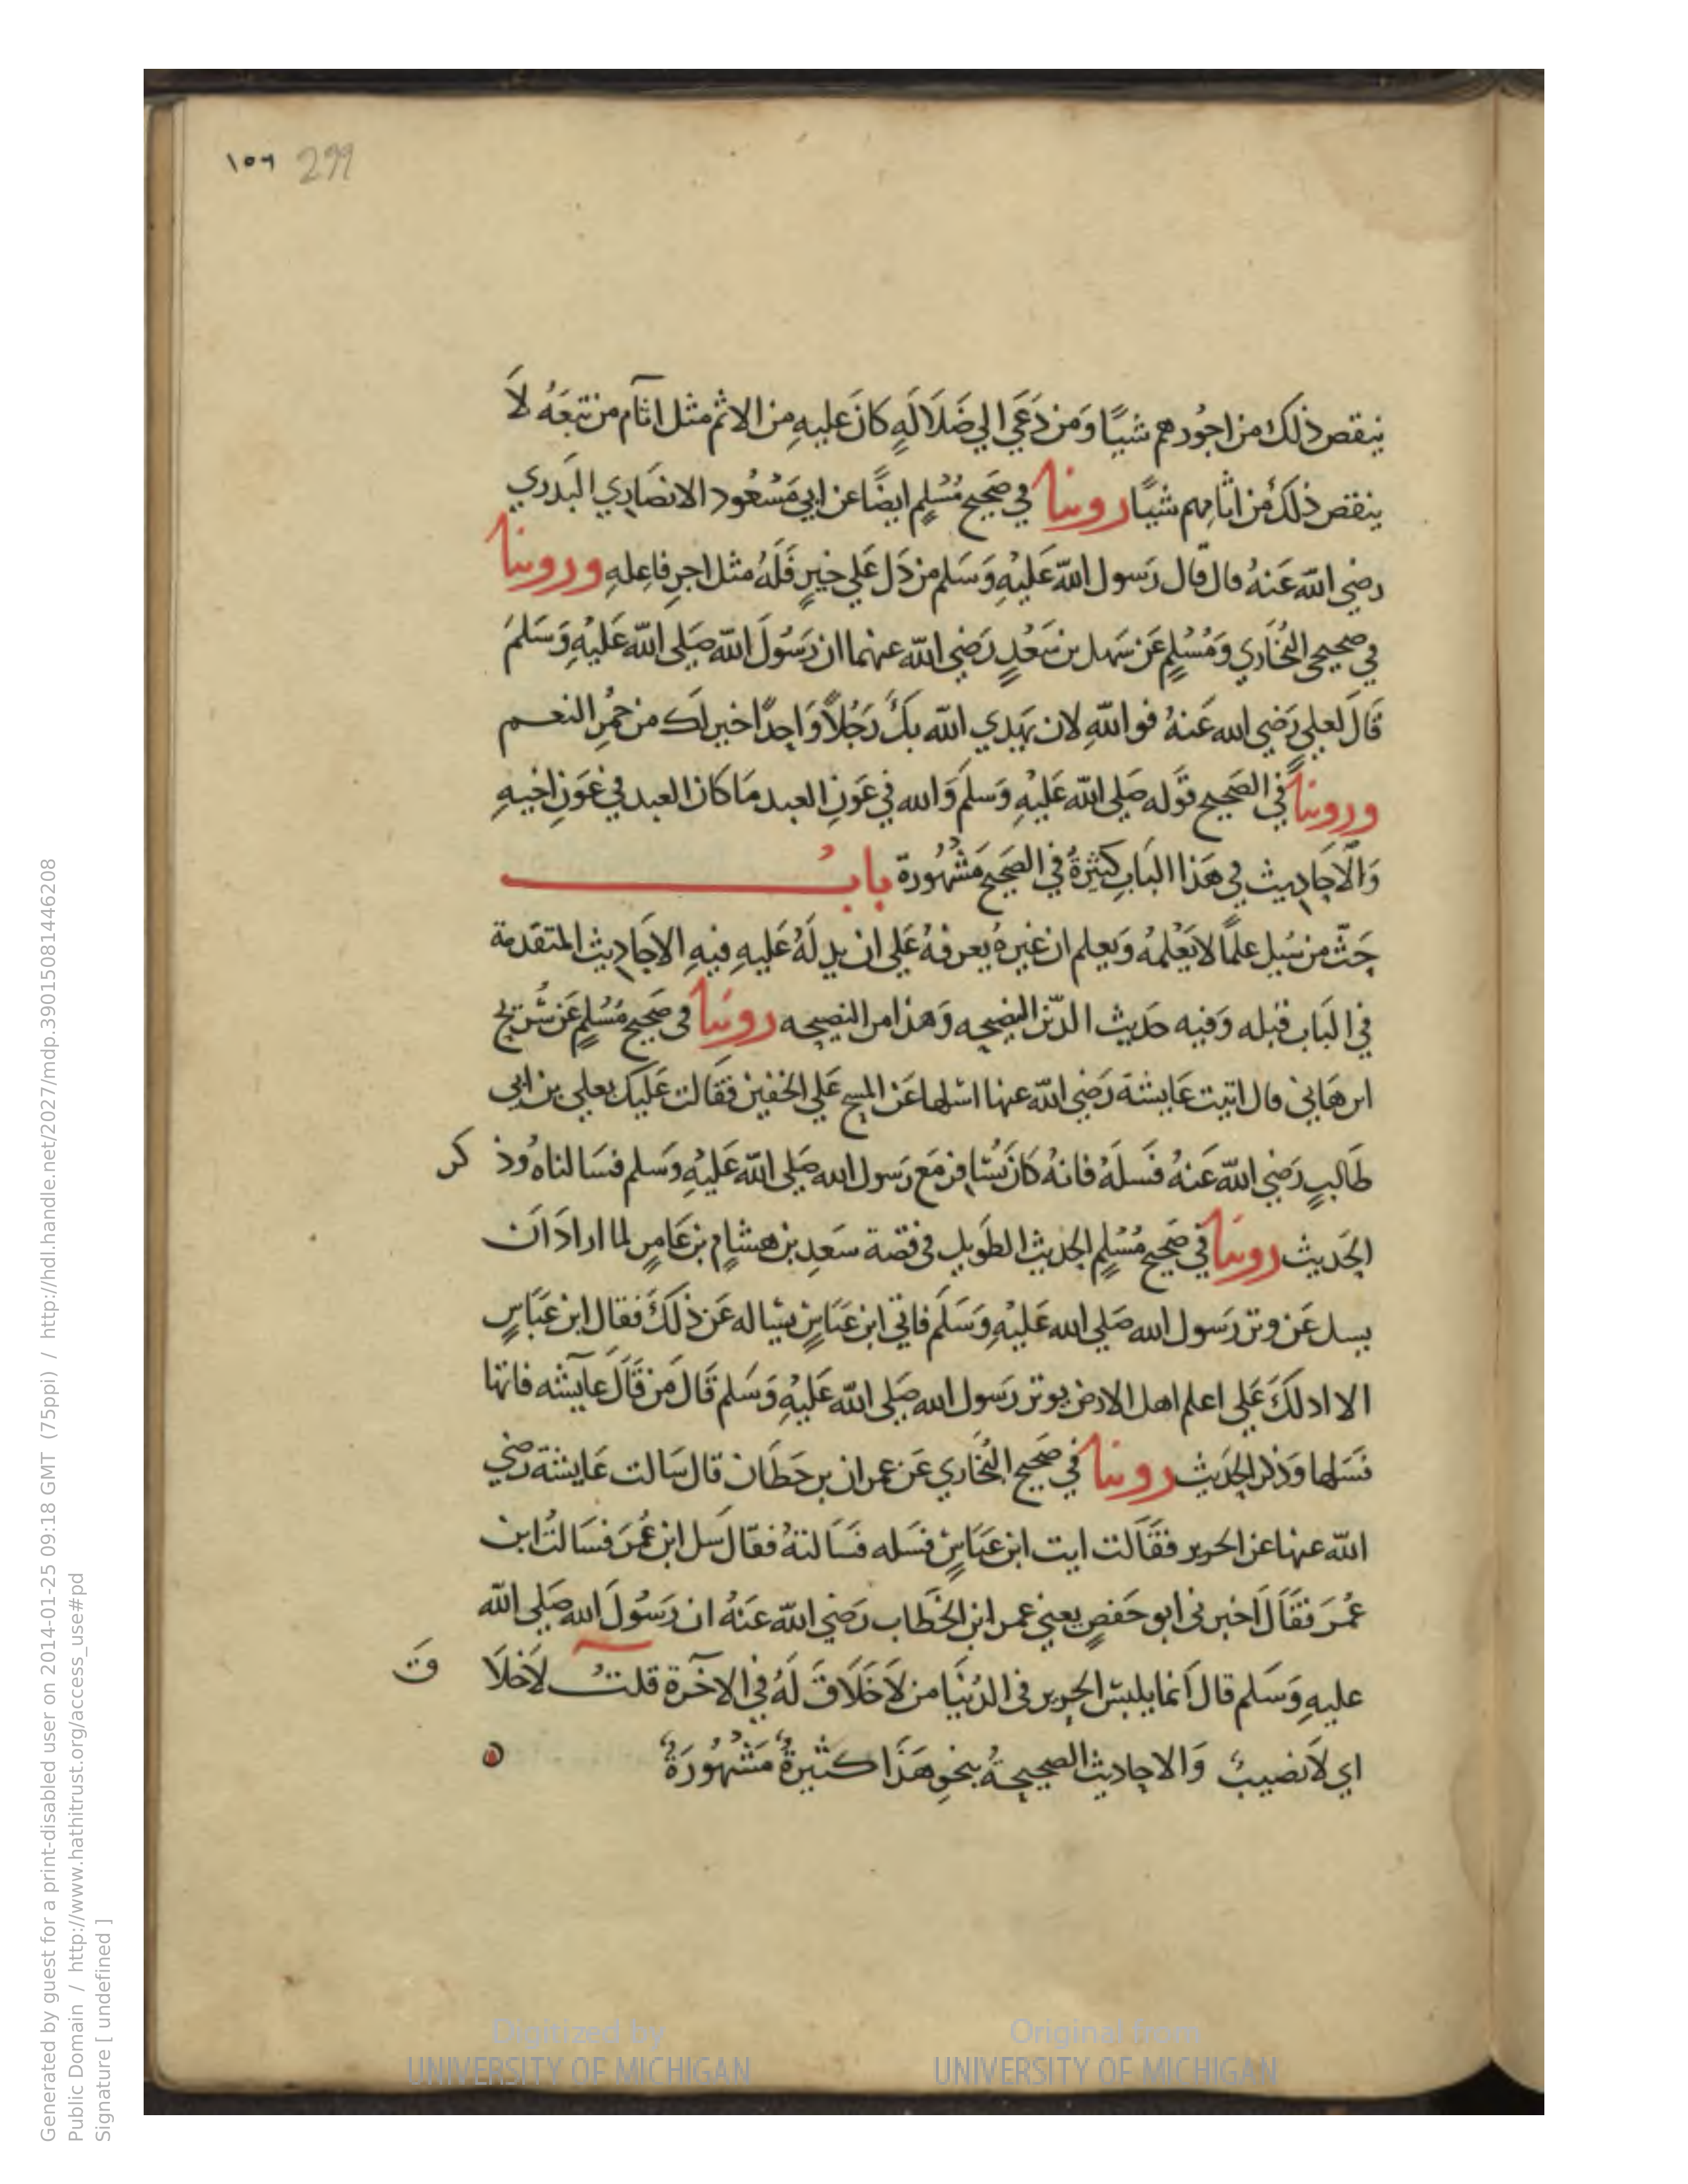 ١٥٦ 299
ينقص ذلك من اجُورهم شيًا وَمن دَعَي الي ضَلَالَهٍ كانَ عليهِ من الاثم مثل اثآم من تبعَهُ لاَ
ينقص ذلكَ من اثامهم شيًا روينا في صَحيح مُسْلِم ايضًا عن ابي مَسْعُود الانصَاري البَدري
رضي الله عَنهُ قال قال رَسول الله عَليْهِ وَسَلم من دَل عَلي خيرٍ فَلَهُ مثل اجرِ فاعِلهِ وروينا
في صحيحي البُخَاري وَمُسْلمٍ عَن سَهل بن سَعْدٍ رَضي الله عنهما ان رَسُولَ الله صَلي الله عَليْهِ وَسَلمَ
قَالَ لعلي رَضي الله عَنهُ فو اللهِ لان يَهدي الله بكَ رَجُلاً وَاحِدًا خير لك من حمُرِ النعم
وروينا في الصَحيح قوَله صَلي الله عَليْهِ وَسَلمَ وَالله في عَونِ العبد مَا كان العبد في عَونِ اخيهِ
وَالاَحَاديث في هَذا البَابِ كثِيَرةٌ في الصَحيح مَشْهُورة بابُ
حَثّ من سُيل علمًا لا يَعْلمهُ وَيعلم ان غيرهُ يعرفهُ عَلي ان يدلَهُ عَليهِ فيهِ الاحَاديث المتقدمة
في البَاب قبله وَفيه حَديث الدّين النصيحه وَهذا من النصيحه روينا في صَحيح مُسْلمٍ عَن شُريح
ابن هَاني قال اتيت عَايشة رَضي الله عنها اسْلها عَن المسح عَلي الخفين فقَالت عَليكَ بعلي بن ابي
طَالبٍ رَضي الله عَنهُ فسَلهُ فانهُ كانَ يُسَافر مَع رَسول الله صَلي الله عَليْهِ وَسَلم فسَالناه وُذ كر
الحَديث روينا في صَحيح مُسْلمٍ الحديث الطَويل في قصة سَعدِ بن هشامٍ بن عَامرٍ لما ارادَ اَن
يسل عَن وتر رَسول الله صَلي الله عَليْهِ وَسَلمَ فاتي ابن عَبَاسٍ يسَاله عَن ذلكَ فقال ابن عَبَاسٍ
الا ادلكَ عَلي اعلم اهل الارض بوتر رَسول الله صَلي الله عَليْهِ وَسَلم قَالَ مَن قَالَ عاَيشه فاتها
فسَلها وَذكر الحَديث روينا في صَحيح البُخَاري عَن عمران بن حَطَان قال سَالت عَايشة رضي
الله عنها عن الحرير فقَالت ايت ابن عَبَاسٍ فسَله فسَالتهُ فقال سَل ابن عُمَرَ فسَالتُ ابن
عُمَرَ فقَالَ اخبرني ابو حَفصٍ يعني عمر ابن الخَطاب رَضي الله عَنهُ ان رَسُولَ الله صَلي الله
عليهِ وَسَلم قال اَنما يلبسُ الحرير في الدُنيَا من لاَ خَلاَقَ لَهُ في الاخرَة قلتُ لاَخلاَ قَ
اي لاَنصيبَ وَالاحاديث الصحيحةُ بنحوِ هَذَا كثيرةٌ مَشْهُورَةٌ
Generated by guest for a print-disabled user on 2014-01-25 09:18 GMT (75ppi) / http://hdl.handle.net/2027/mdp.39015081446208
Public Domain / http://www.hathitrust.org/access_use#pd
Signature [ undefined ]
Digitized by
UNIVERSITY OF MICHIGAN
Original from
UNIVERSITY OF MICHIGAN